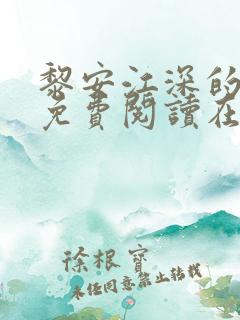 黎安江深的
免費閱讀在
徐根寶
未任同意禁止转载